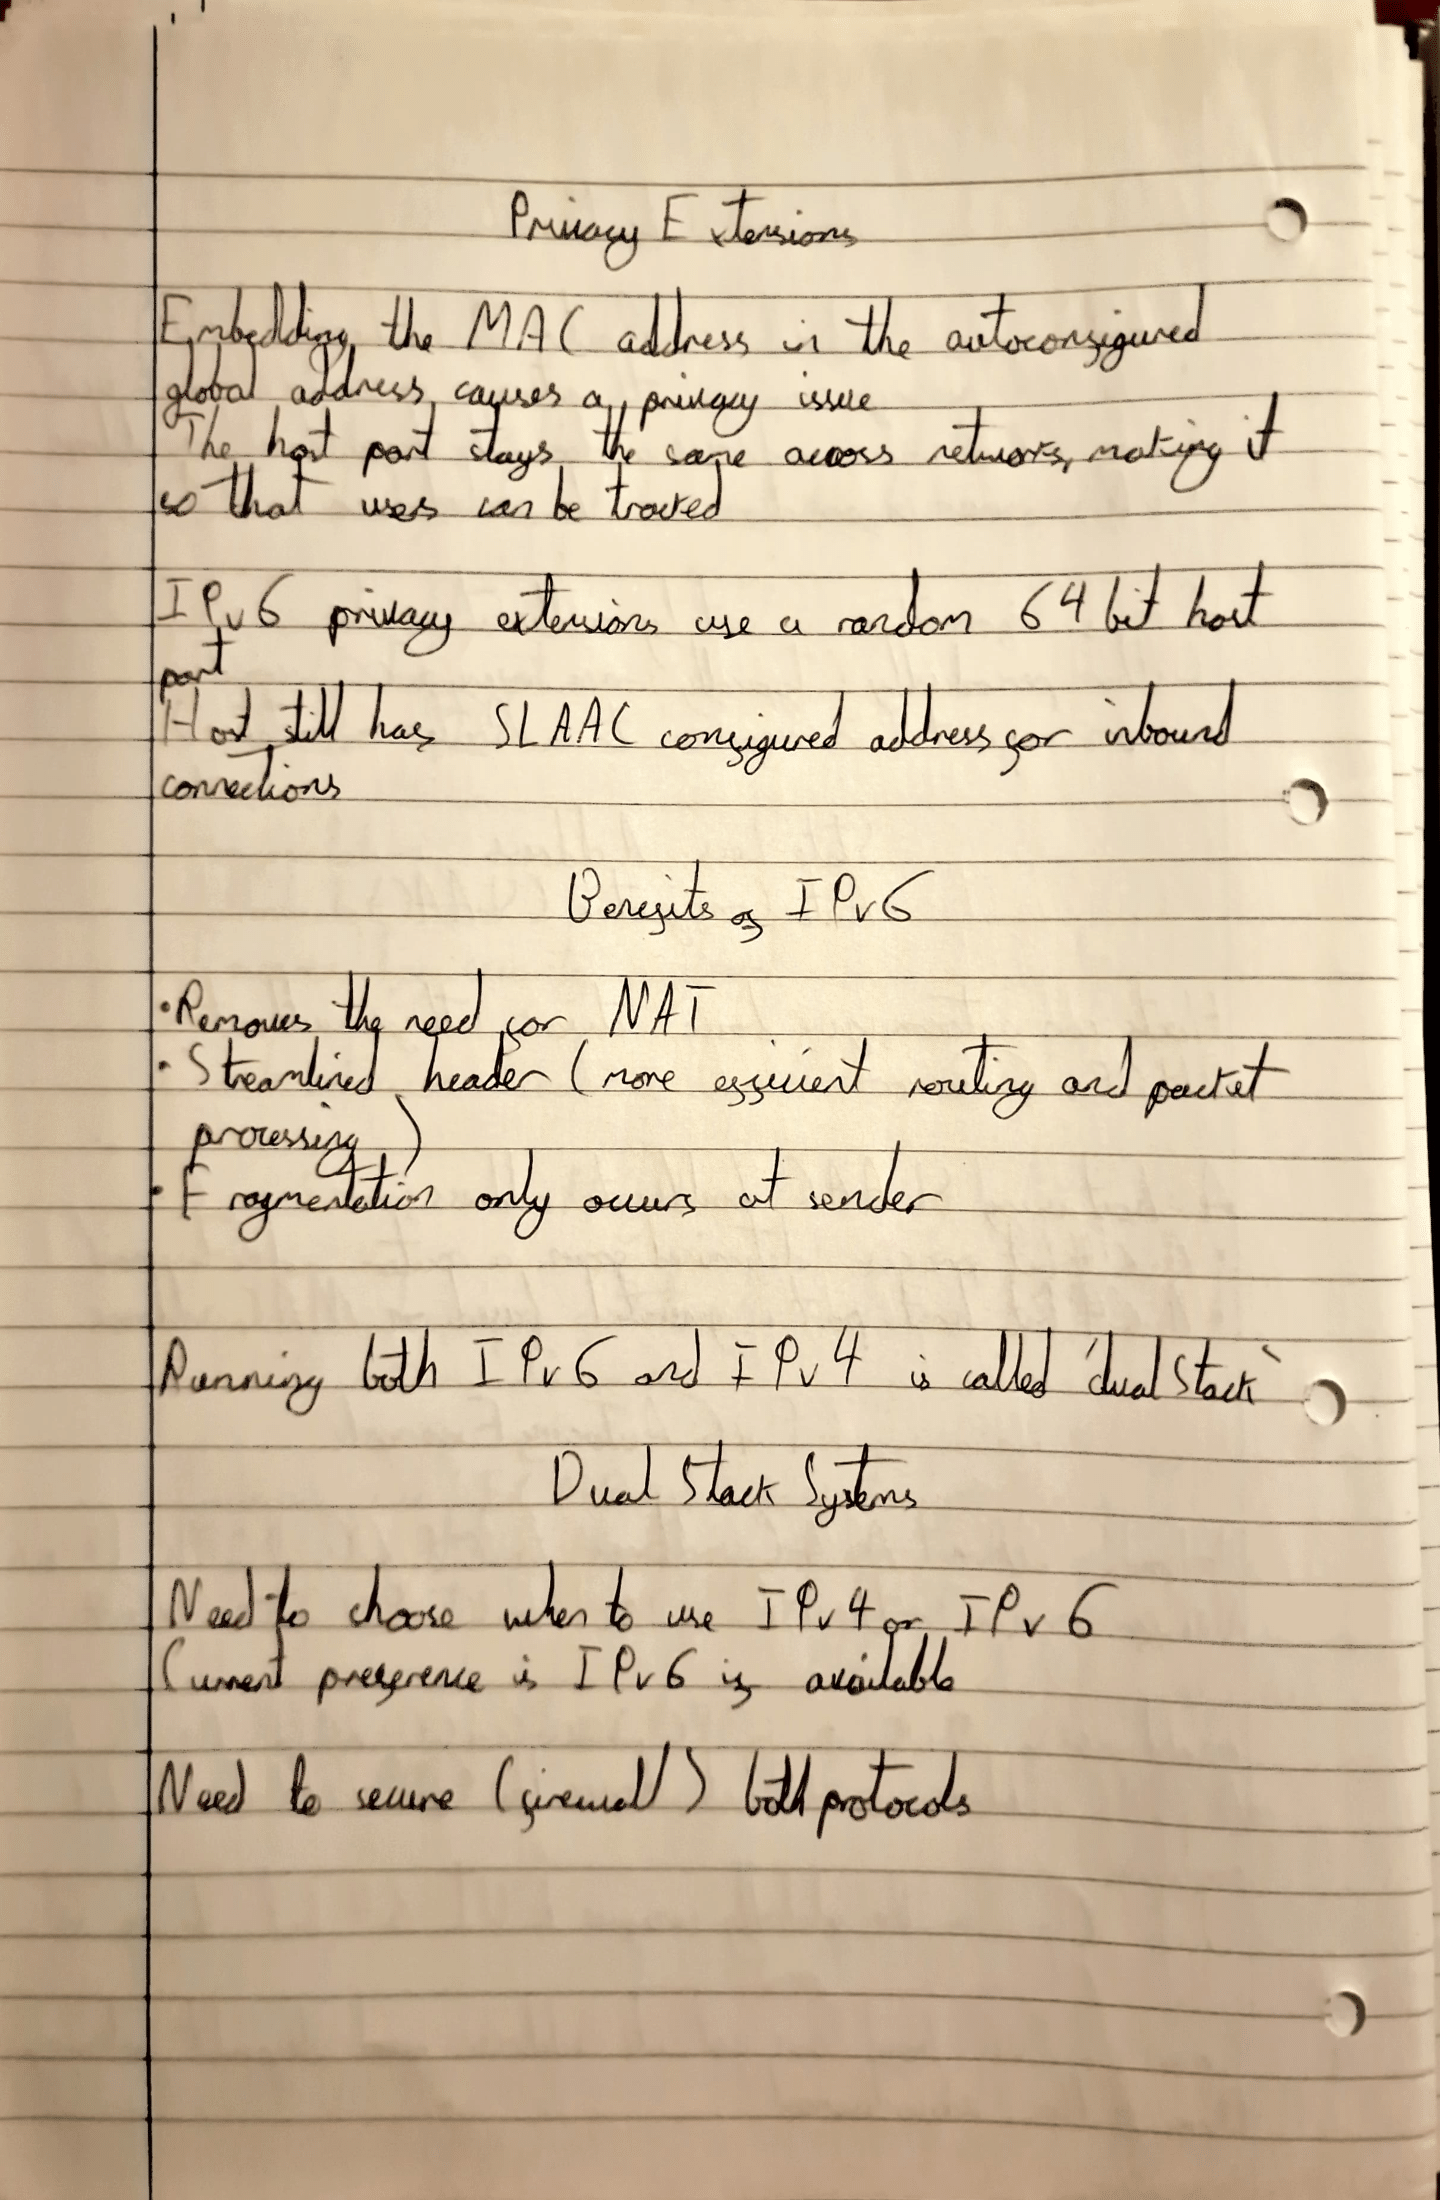 Privacy Extensions
Embedding the MAC address in the autoconfigured
global address causes a privacy issue
The host part stays the same across networks, making it
so that users can be tracked
IPv6 privacy extensions use a random 64 bit host
part
Host still has SLAAC configured address for inbound
connections
Benefits of IPv6
• Removes the need for NAT
• Streamlined header (more efficient routing and packet
processing)
• Fragmentation only occurs at sender
Running both IPv6 and IPv4 is called 'dual stack'
Dual Stack Systems
Need to choose when to use IPv4 or IPv6
Current preference is IPv6 if available
Need to secure (firewall) both protocols